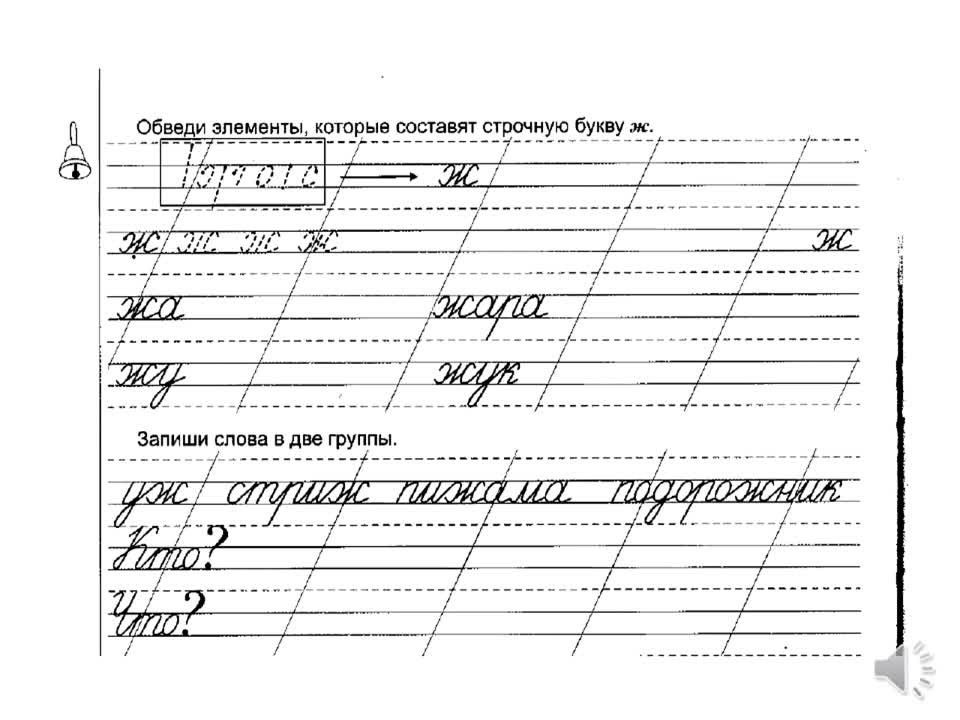 Обведи элементы, которые составят строчную букву ж.
ж
ж ж ж ж ж
жа жара
жу жук
Запиши слова в две группы.
уж стриж пижама подорожник
Кто?
Что?